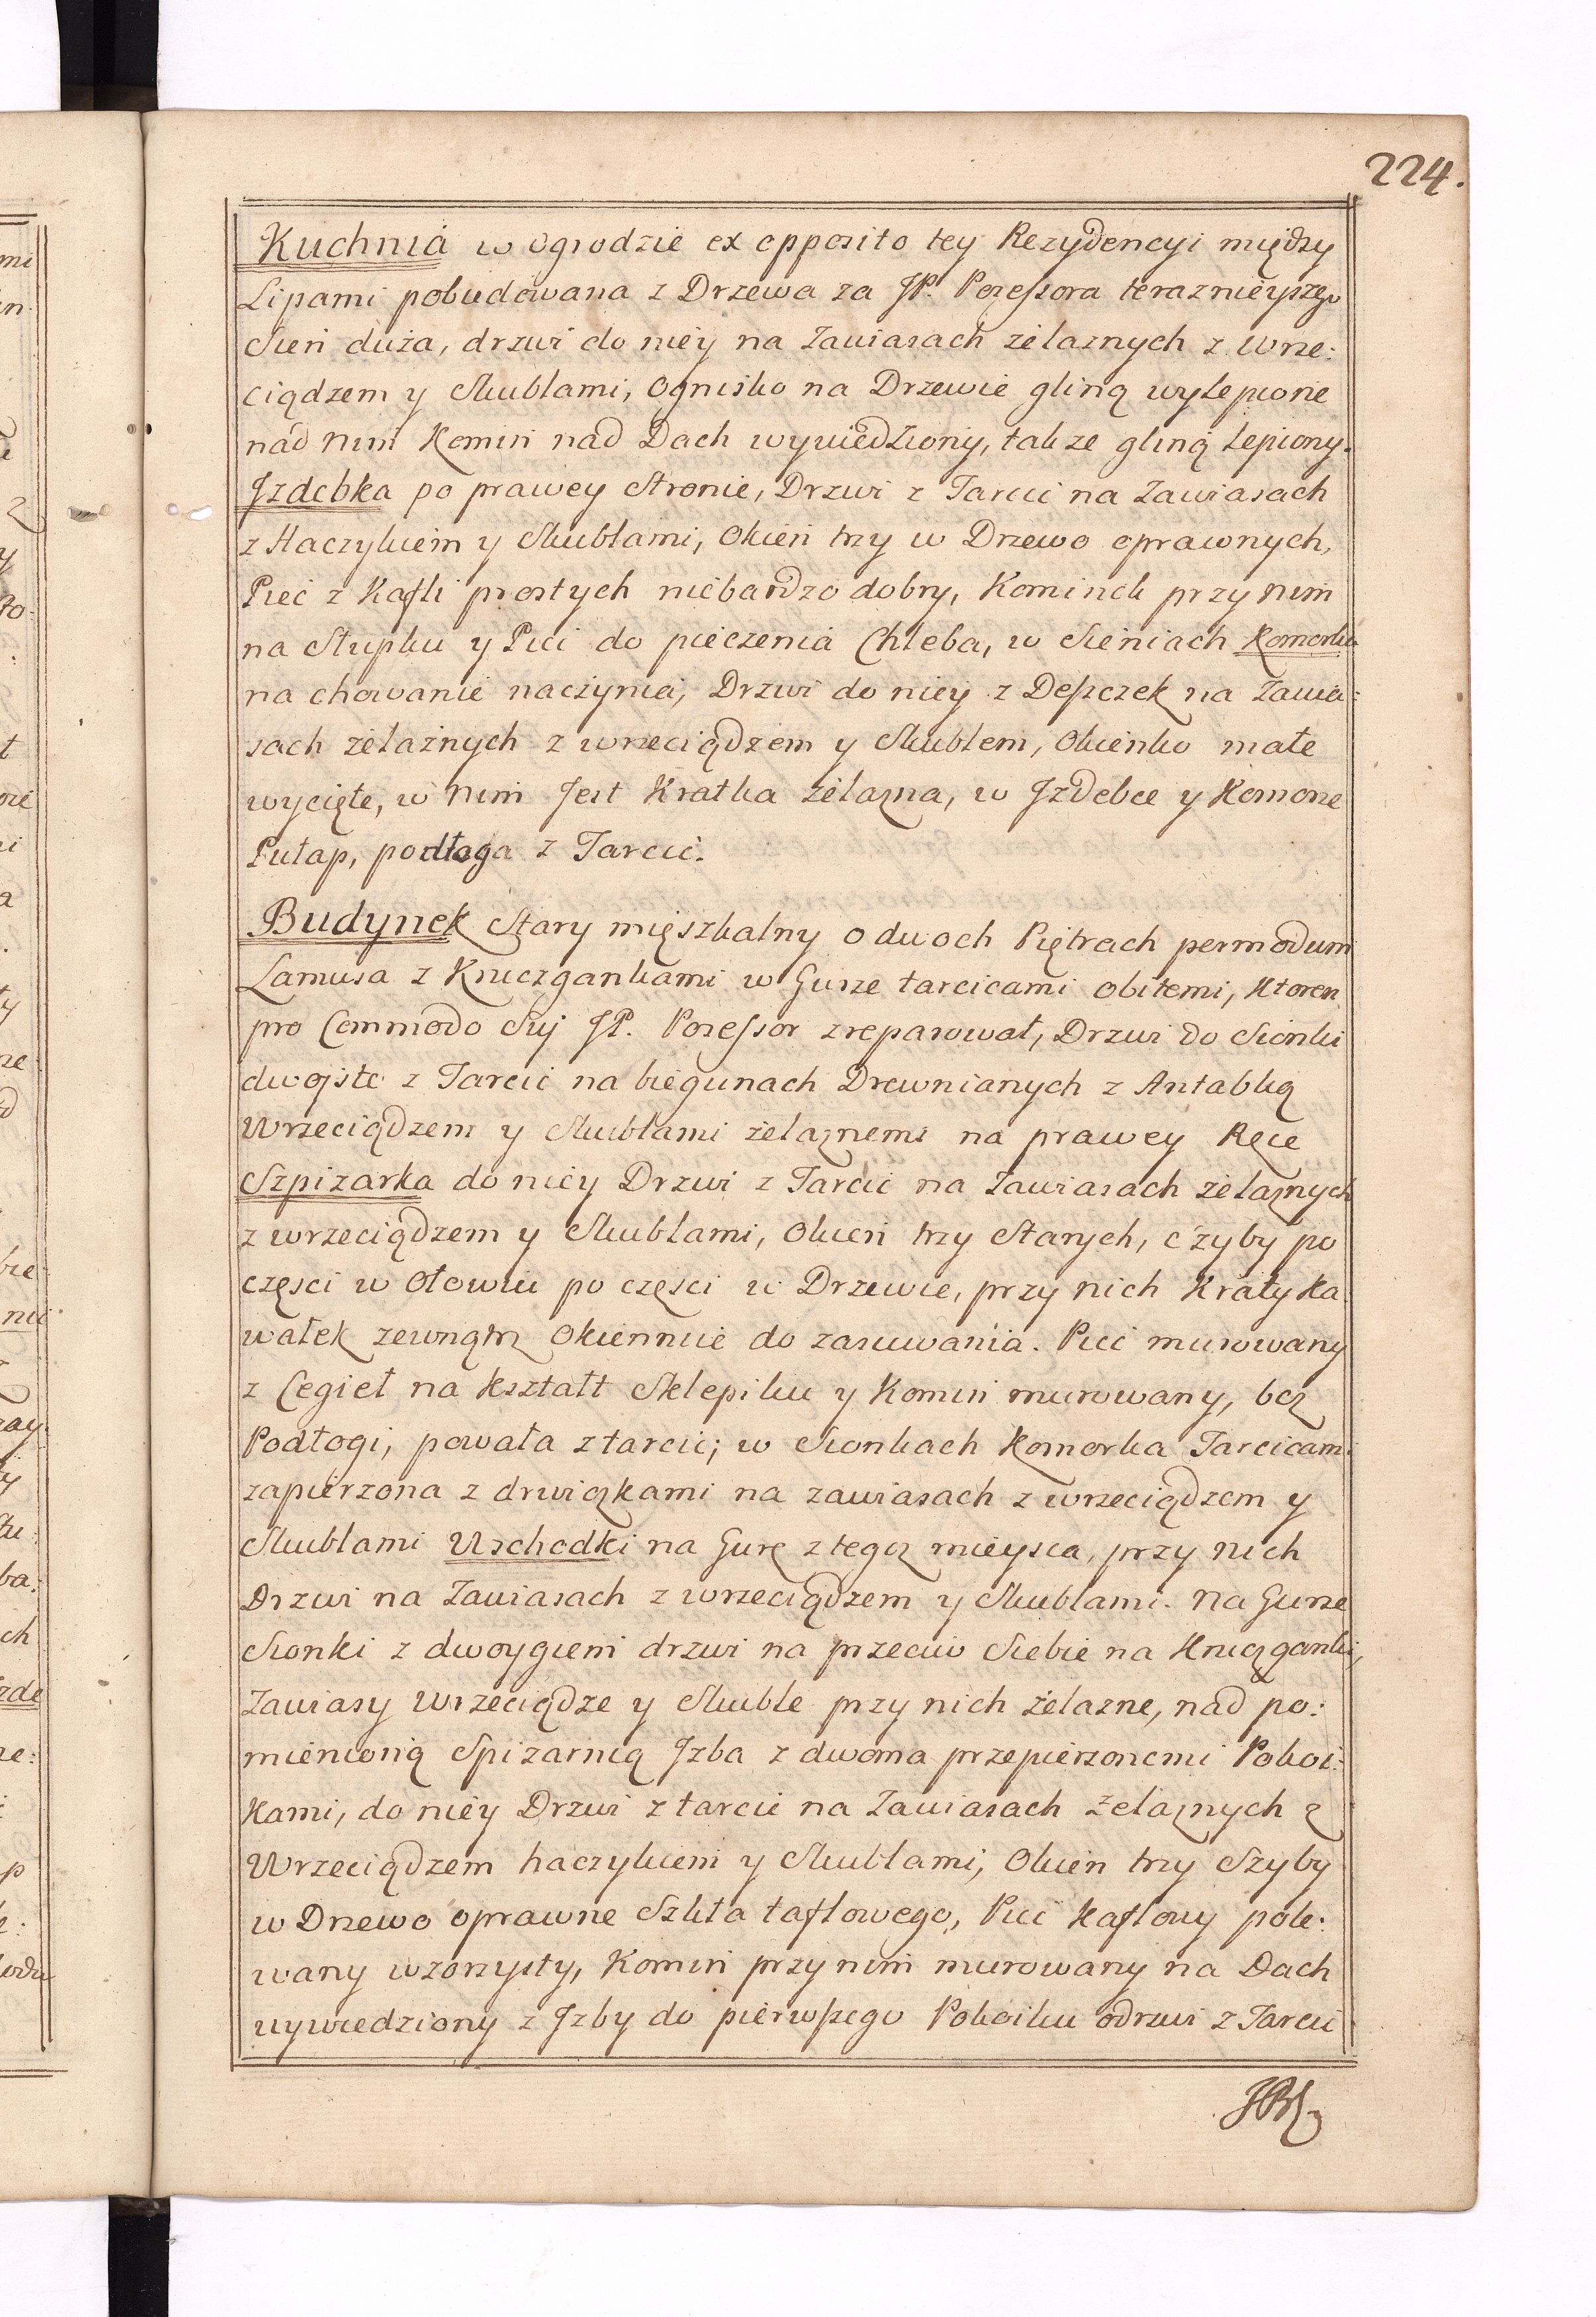 224.
Kuchnia w ogrodzie ex opposito tey Rezydencyi między
Lipami pobudowana z Drzewa za JP. Pozeſsora teraznieyszego
Sień duża, drzwi do niey na Zawiasach żelaznych z Wrze:
ciądzem y Skublami, Ognisko na Drzewie gliną wylepione
nád nim Komin nad Dach wywiedziony, także gliną lepiony.
Jzdebka po prawey Stronie, Drzwi z Tarcic na Zawiasach
z Haczykiem y Skublami, Okien trzy w Drzewo oprawnych,
Piec z Kafli prostych niebardzo dobry, Kominek przy nim
na Słupku y Piec do pieczenia Chleba, w Sieniach Komorka
na chowanie naczynia, Drzwi do niey z Deſzczek na Zawia:
sach żelaznych z wrzeciądzem y Skublem, Okienko małe
wycięte, w nim Jest Kratka żelazna, w Jzdebce y Komorze
Pułap, podłoga z Tarcic.
Budynek Stary mięszkalny o dwoch Piętrach per modum
Lamusa z Kruczgankami w Gurze tarcicami obitemi, Ktoren
pro Commodo Suj JP. Pozeſsor zreparował, Drzwi do Sionki
dwoiste z Tarcic na biegunach Drewnianych z Antabką
Wrzeciądzem y Skublami żelaznemi na prawey Ręce
Szpizarka do niey Drzwi z Tarcic na Zawiasach żelaznych
z wrzeciądzem y Skublami, Okien trzy Starych, czyby po
częsci w Ołowiu po częsci w Drzewie, przy nich Kraty Ka:
wałek zewnątrz Okiennice do zasuwania. Piec murowany
z Cegieł na kształt Sklepiku y Komin murowany, bez
Podłogi, powała z tarcic; w Sionkach Komorka Tarcicami
zapierzona z drwiczkami na zawiasach z wrzeciądzem y
Skublami Wschodki na Gurę z tegoż mieysca, przy nich
Drzwi na Zawiasach z wrzeciądzem y Skublami. Na Gurze
Sionki z dwoygiem drzwi na przeciw Siebie na Kruczganki,
Zawiasy Wrzeciądze y Skuble przy nich żelazne, nad po:
mienioną Spizarnią Jzba z dwoma przepierzonemi Pokoi:
kami, do niey Drzwi z tarcic na Zawiasach żelaznych z
Wrzeciądzem haczykiem y Skublami, Okien trzy Szyby
w Drzewo oprawne Szkła taflowego, Piec kaflowy pole:
wany wzorzysty, Komin przy nim murowany na Dach
wywiedziony z Jzby do pierwſzego Pokoiku odrzwi z Tarcic